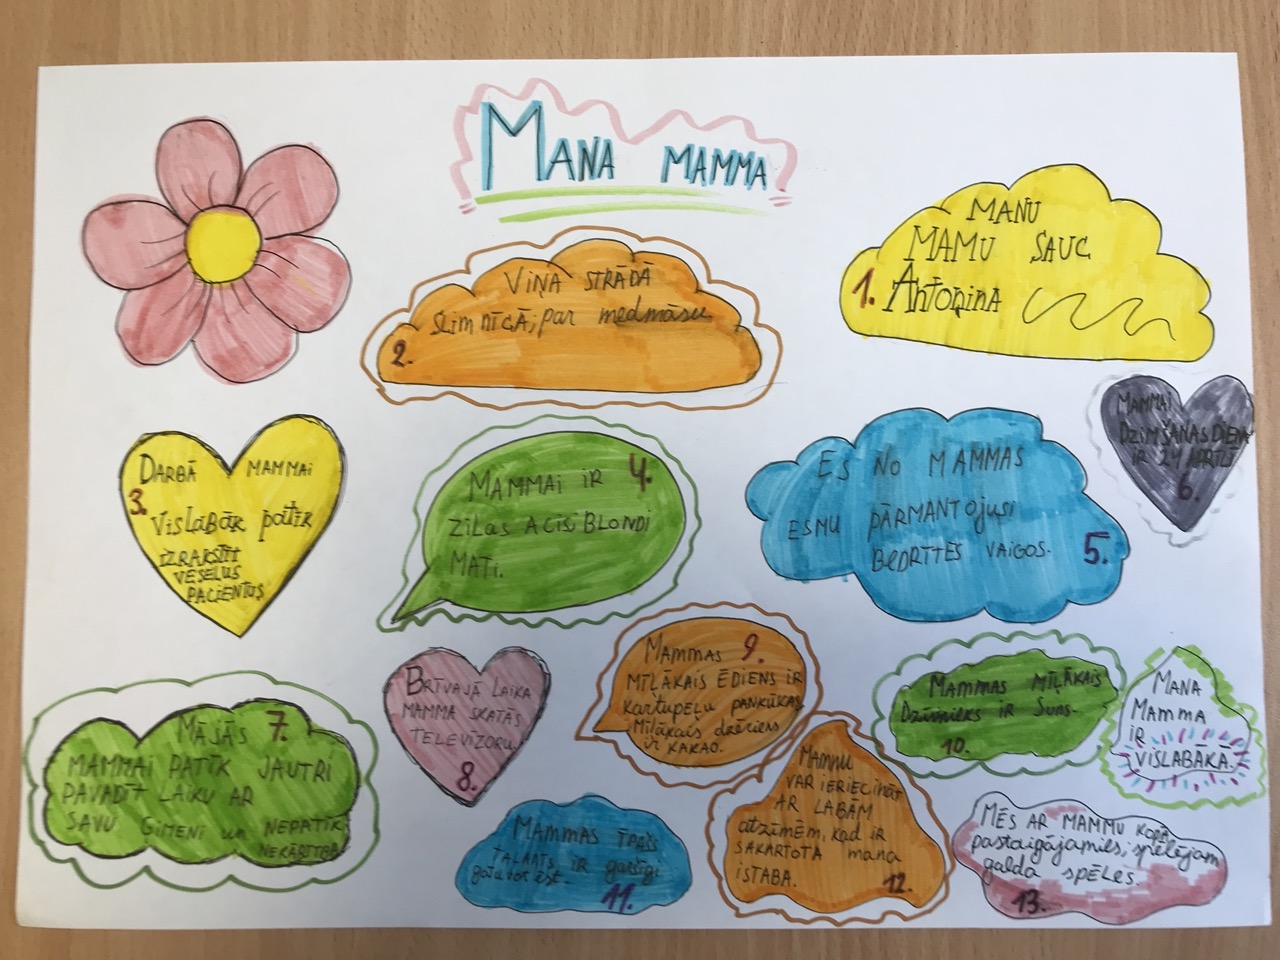 MANA MAMMA
MANU
MAMU SAUC
1. Antoņina
VIŅA STRĀDĀ
SLIMNĪCĀ, par medmāsu
2.
DARBĀ MAMMAI
3. Vislabāk patīk
IZRAKSTĪT
VESELUS
PACIENTUS
MAMMAI IR 4.
ZILAS ACIS, BLONDI
MATI.
ES NO MAMMAS
ESMU PĀRMANTOJUSI
BEDRĪTES VAIGOS. 5.
MAMMAI
DZIMŠANAS DIENA
IR 24 APRĪLĪ
6.
MĀJĀS 7.
MAMMAI PATĪK JAUTRI
PAVADĪT LAIKU AR
SAVU ĢIMENI un NEPATĪK
NEKĀRTĪBA
BRĪVAJĀ LAIKA
MAMMA SKATĀS
TELEVIZORU
8.
MAMMAS 9.
MĪĻĀKAIS ĒDIENS IR
Kartupeļu PANKŪKAS,
Mīļākais dzēriens
ir KAKAO.
MAMMAS MĪĻĀKAIS
Dzīvnieks IR Suns.
10.
MANA
MAMMA
IR
VISLABĀKĀ.
MAMMAS īpašs
TALANTS IR garšīgi
gatavot ēst.
11.
MAMMU
VAR IEPRIECINĀT
AR LABĀM
atzīmēm, kad ir
SAKĀRTOTA mana
ISTABA. 12.
MĒS AR MAMMU KOPĀ
pastaigājamies, spēlējam
galda spēles.
13.